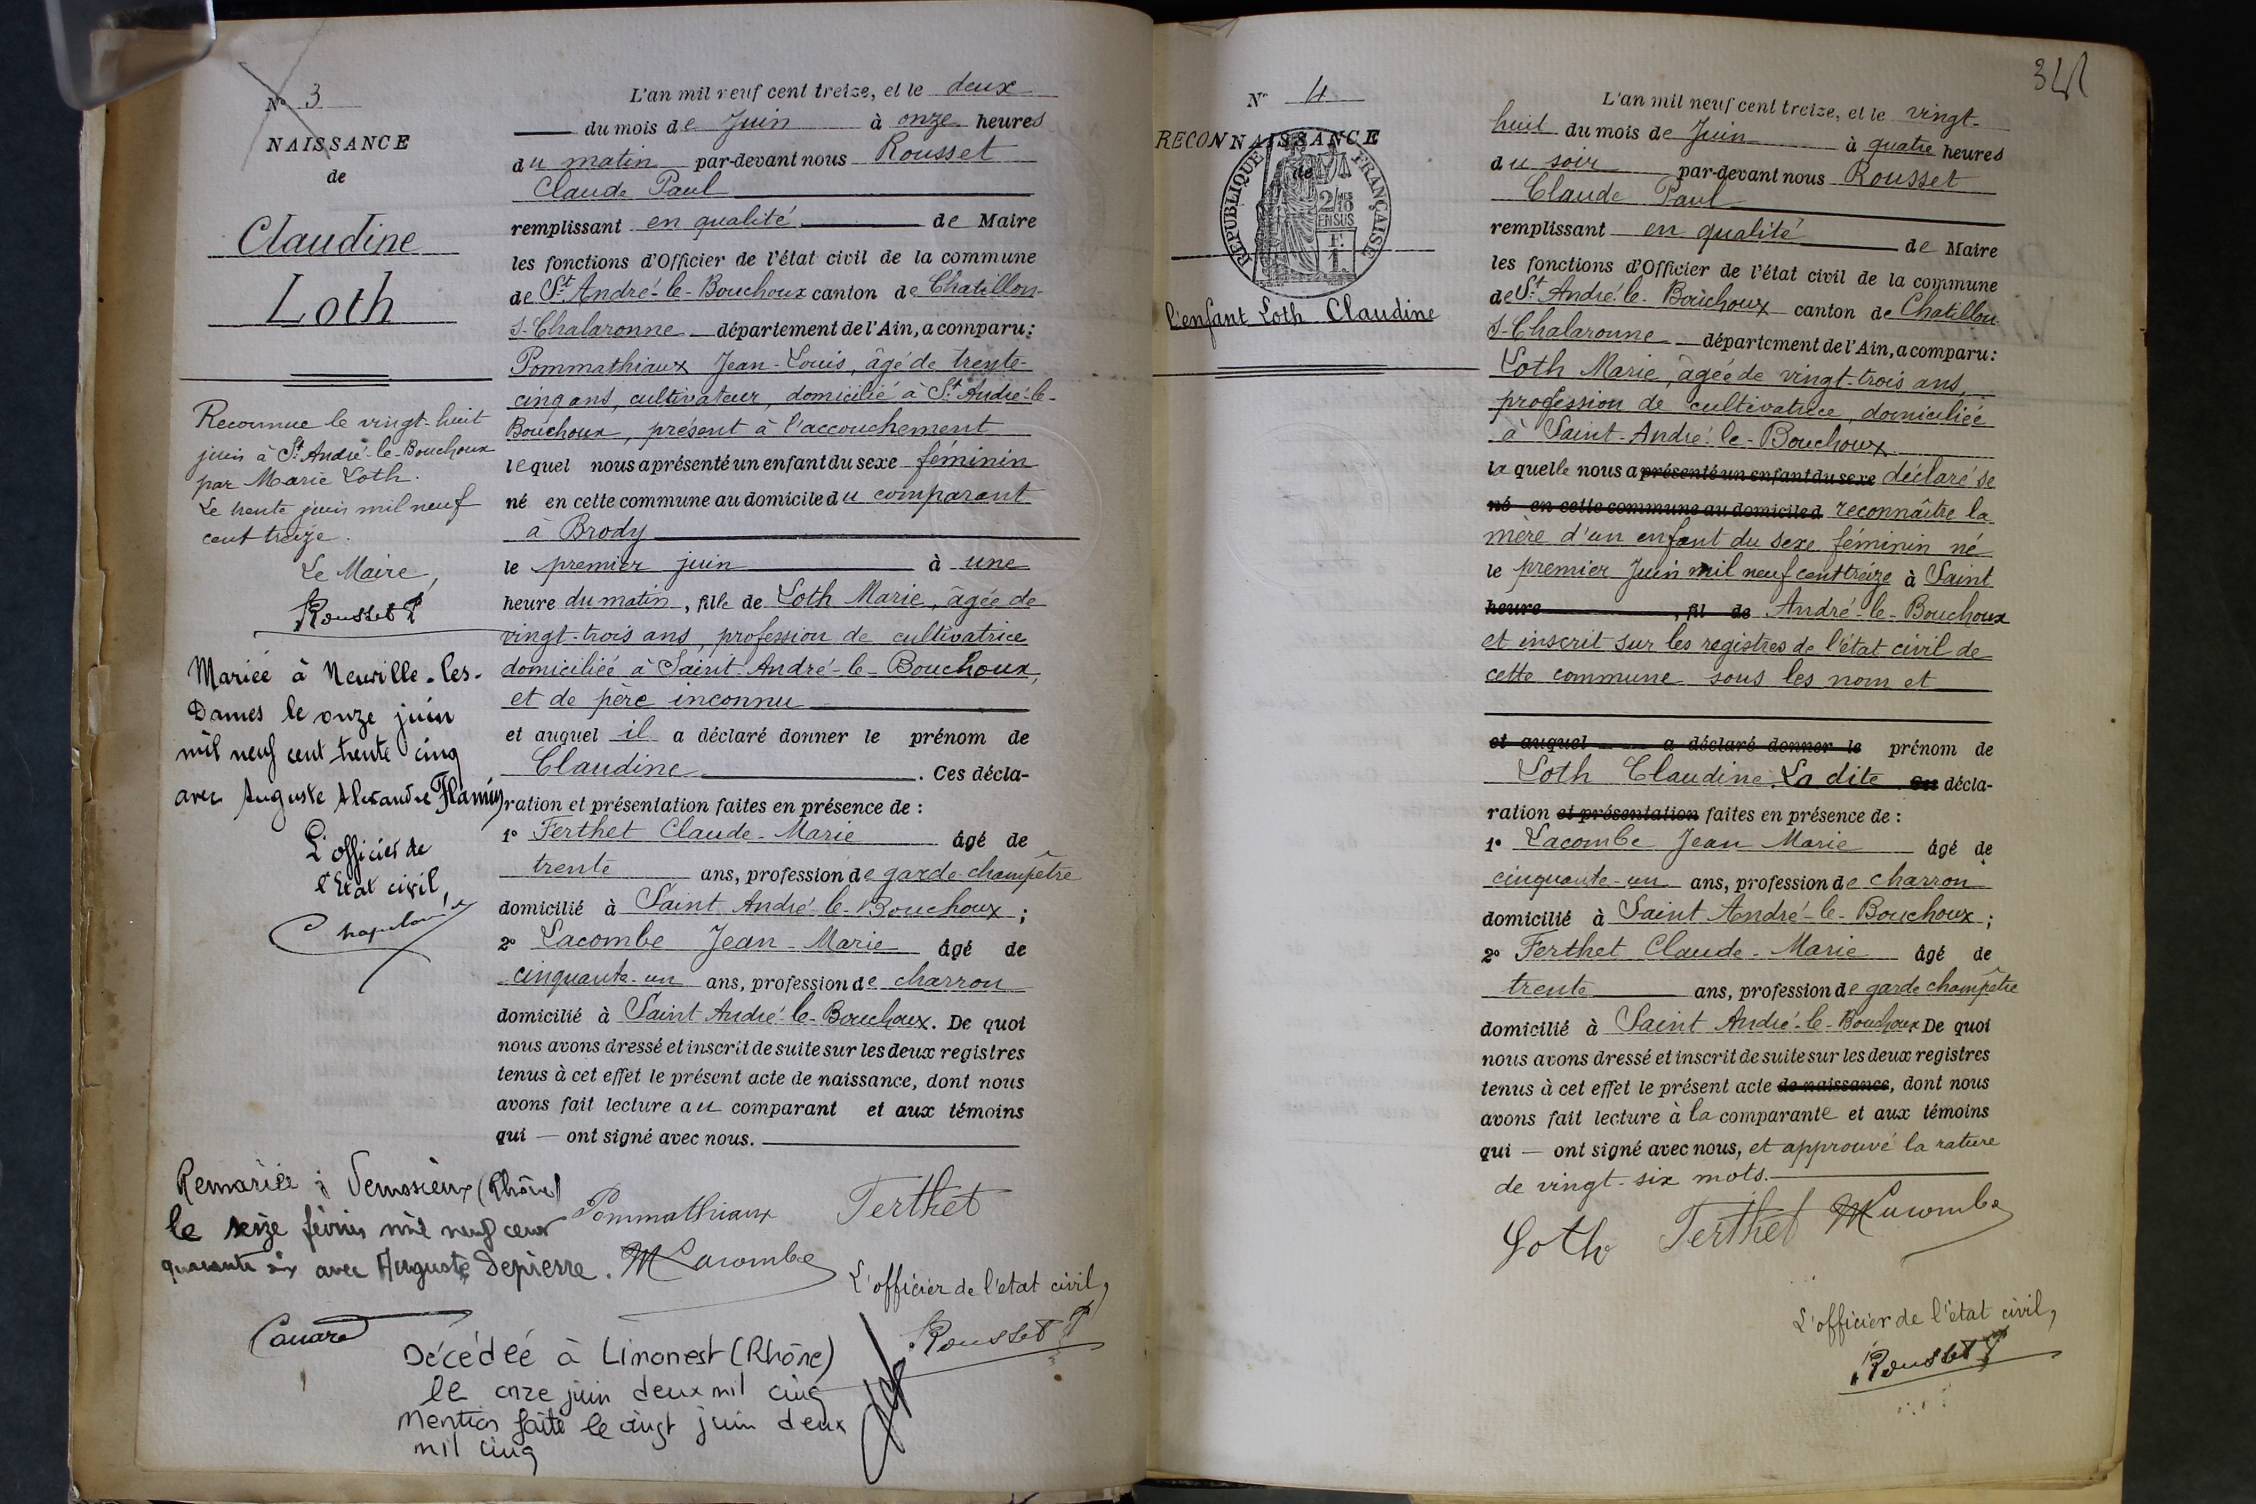 N° 3
NAISSANCE
de
Claudine
Loth
Reconnue le vingt-huit
juin à St André-le-Bouchoux
par Marie Loth.
Le trente juin mil neuf
cent treize.
Le Maire,
Rousset P
Mariée à Neuville-les-
Dames le onze juin
mil neuf cent trente cinq
avec Auguste Alexandre
L'officier de
l'Etat civil,
L'an mil neuf cent treize, et le deux
du mois de Juin à onze heures
du matin par-devant nous Rousset
Claude Paul
remplissant en qualité de Maire
les fonctions d'Officier de l'état civil de la commune
de St André-le-Bouchoux canton de Chatillon-
s-Chalaronne département de l'Ain, a comparu:
Pommathiaux Jean-Louis, âgé de trente-
cinq ans, cultivateur, domicilié à St André-le-
Bouchoux, présent à l'accouchement
lequel nous a présenté un enfant du sexe féminin
né en cette commune au domicile du comparant
à Brody
le premier juin à une
heure du matin, fille de Loth Marie, âgée de
vingt-trois ans, profession de cultivatrice
domiciliée à Saint-André-le-Bouchoux,
et de père inconnu
et auquel il a déclaré donner le prénom de
Claudine. Ces décla-
ration et présentation faites en présence de :
1° Ferthet Claude-Marie âgé de
trente ans, profession de garde-champêtre
domicilié à Saint André-le-Bouchoux ;
2° Lacombe Jean-Marie âgé de
cinquante-un ans, profession de charron
domicilié à Saint André-le-Bouchoux. De quoi
nous avons dressé et inscrit de suite sur les deux registres
tenus à cet effet le présent acte de naissance, dont nous
avons fait lecture au comparant et aux témoins
qui — ont signé avec nous.
Pommathiaux Ferthet
Lacombe
L'officier de l'état civil,
Rousset P
Remariée à (Rhône)
le seize février mil neuf cent
quarante six avec Auguste Depierre.
Décédée à Limonest (Rhône)
le onze juin deux mil cinq
Mention faite le vingt juin deux
mil cinq
N° 4
RECONNAISSANCE
de
REPUBLIQUE FRANÇAISE
2/10
EN SUS
l'enfant Loth Claudine
L'an mil neuf cent treize, et le vingt-
huit du mois de Juin à quatre heures
du soir par-devant nous Rousset
Claude Paul
remplissant en qualité de Maire
les fonctions d'Officier de l'état civil de la commune
de St André-le-Bouchoux canton de Chatillon
s-Chalaronne département de l'Ain, a comparu:
Loth Marie, âgée de vingt-trois ans,
profession de cultivatrice, domiciliée
à Saint-André-le-Bouchoux.
la quelle nous a présenté un enfant du sexe déclaré se
né en cette commune au domicile d reconnaître la
mère d'un enfant du sexe féminin né
le premier Juin mil neuf cent treize à Saint
heure, fil de André-le-Bouchoux
et inscrit sur les registres de l'état civil de
cette commune sous les nom et
et auquel a déclaré donner le prénom de
Loth Claudine. La dite décla-
ration et présentation faites en présence de :
1° Lacombe Jean Marie âgé de
cinquante-un ans, profession de charron
domicilié à Saint André-le-Bouchoux ;
2° Ferthet Claude-Marie âgé de
trente ans, profession de garde champêtre
domicilié à Saint André-le-Bouchoux De quoi
nous avons dressé et inscrit de suite sur les deux registres
tenus à cet effet le présent acte de naissance, dont nous
avons fait lecture à la comparante et aux témoins
qui — ont signé avec nous, et approuvé la rature
de vingt-six mots.
Loth Ferthet Lacombe
L'officier de l'état civil,
Rousset P